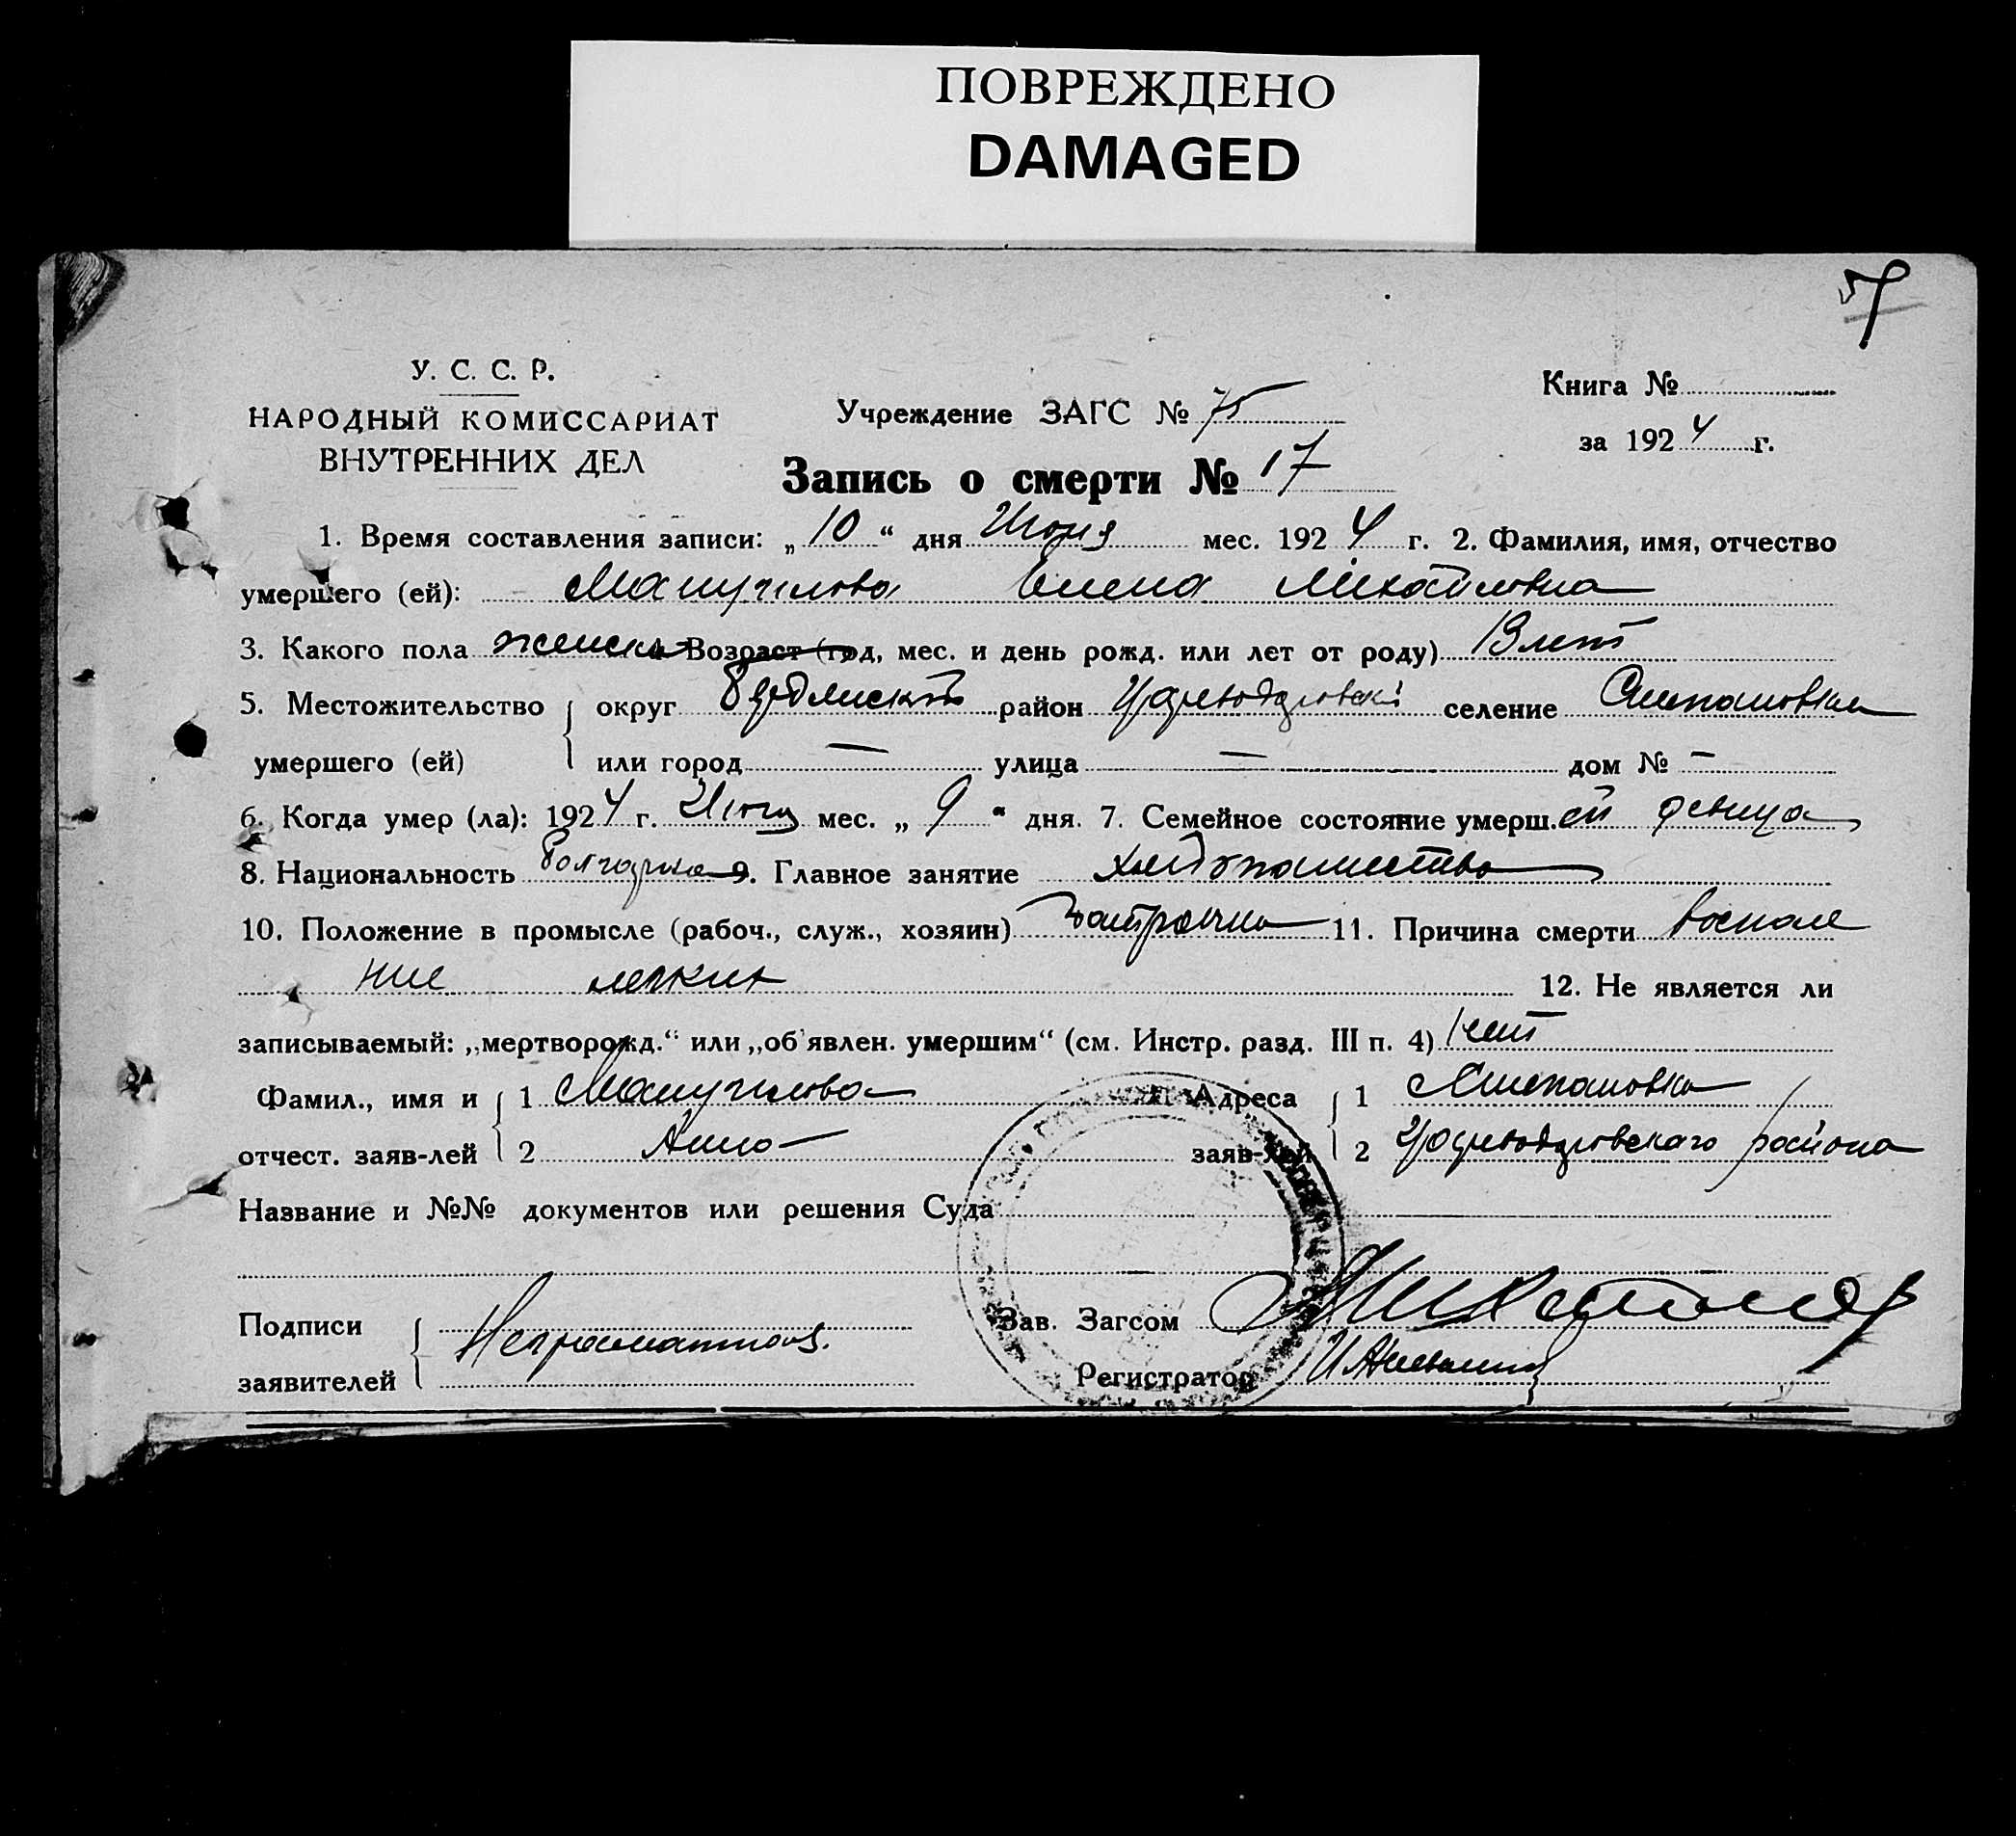 ПОВРЕЖДЕНО
DAMAGED
57
У. С. С. Р.
НАРОДНЫЙ КОМИССАРИАТ
ВНУТРЕННИХ ДЕЛ
Учреждение ЗАГС № 75
Книга №
за 1924 г.
Запись о смерти № 17
1. Время составления записи: „10“ дня Июня мес. 1924 г. 2. Фамилия, имя, отчество
умершего (ей): Елена Михайловна
3. Какого пола женска 4. Возраст (год, мес. и день рожд. или лет от роду) 13 лет
5. Местожительство округ район селение Степановка
умершего (ей) или город — улица — дом № —
6. Когда умер (ла): 1924 г. мес. „9“ дня. 7. Семейное состояние умерш.ей девица
8. Национальность болгарка 9. Главное занятие хлебопашество
10. Положение в промысле (рабоч., служ., хозяин) 11. Причина смерти воспале
ние легких 12. Не является ли
записываемый: „мертворожд.“ или „об'явлен. умершим“ (см. Инстр. разд. III п. 4) нет
Фамил., имя и 1 Адреса 1 Степановка
отчест. заяв-лей 2 Анна заяв-лей 2 района
Название и №№ документов или решения Суда
Подписи Неграмотная. Зав. Загсом
заявителей Регистратор